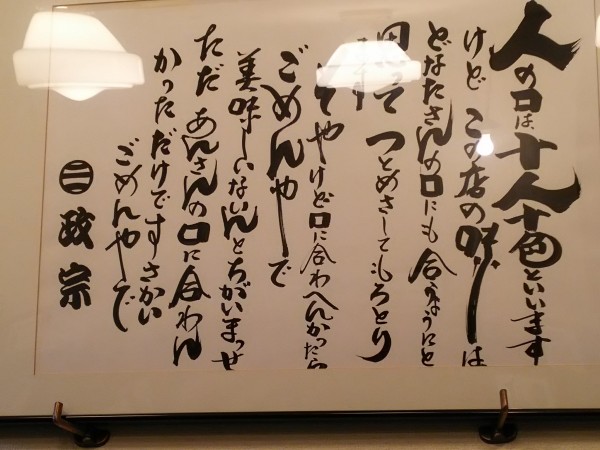 人の口は十人十色といいます
けど この店の味は
どなたさんの口にも合うようにと
思って つとめさしてもろとり
ます
そやけど口に合わへんかったら
ごめんやで
美味しいないんとちがいまっせ
ただ あんさんの口に合わん
かっただけですさかい
ごめんやで
政宗